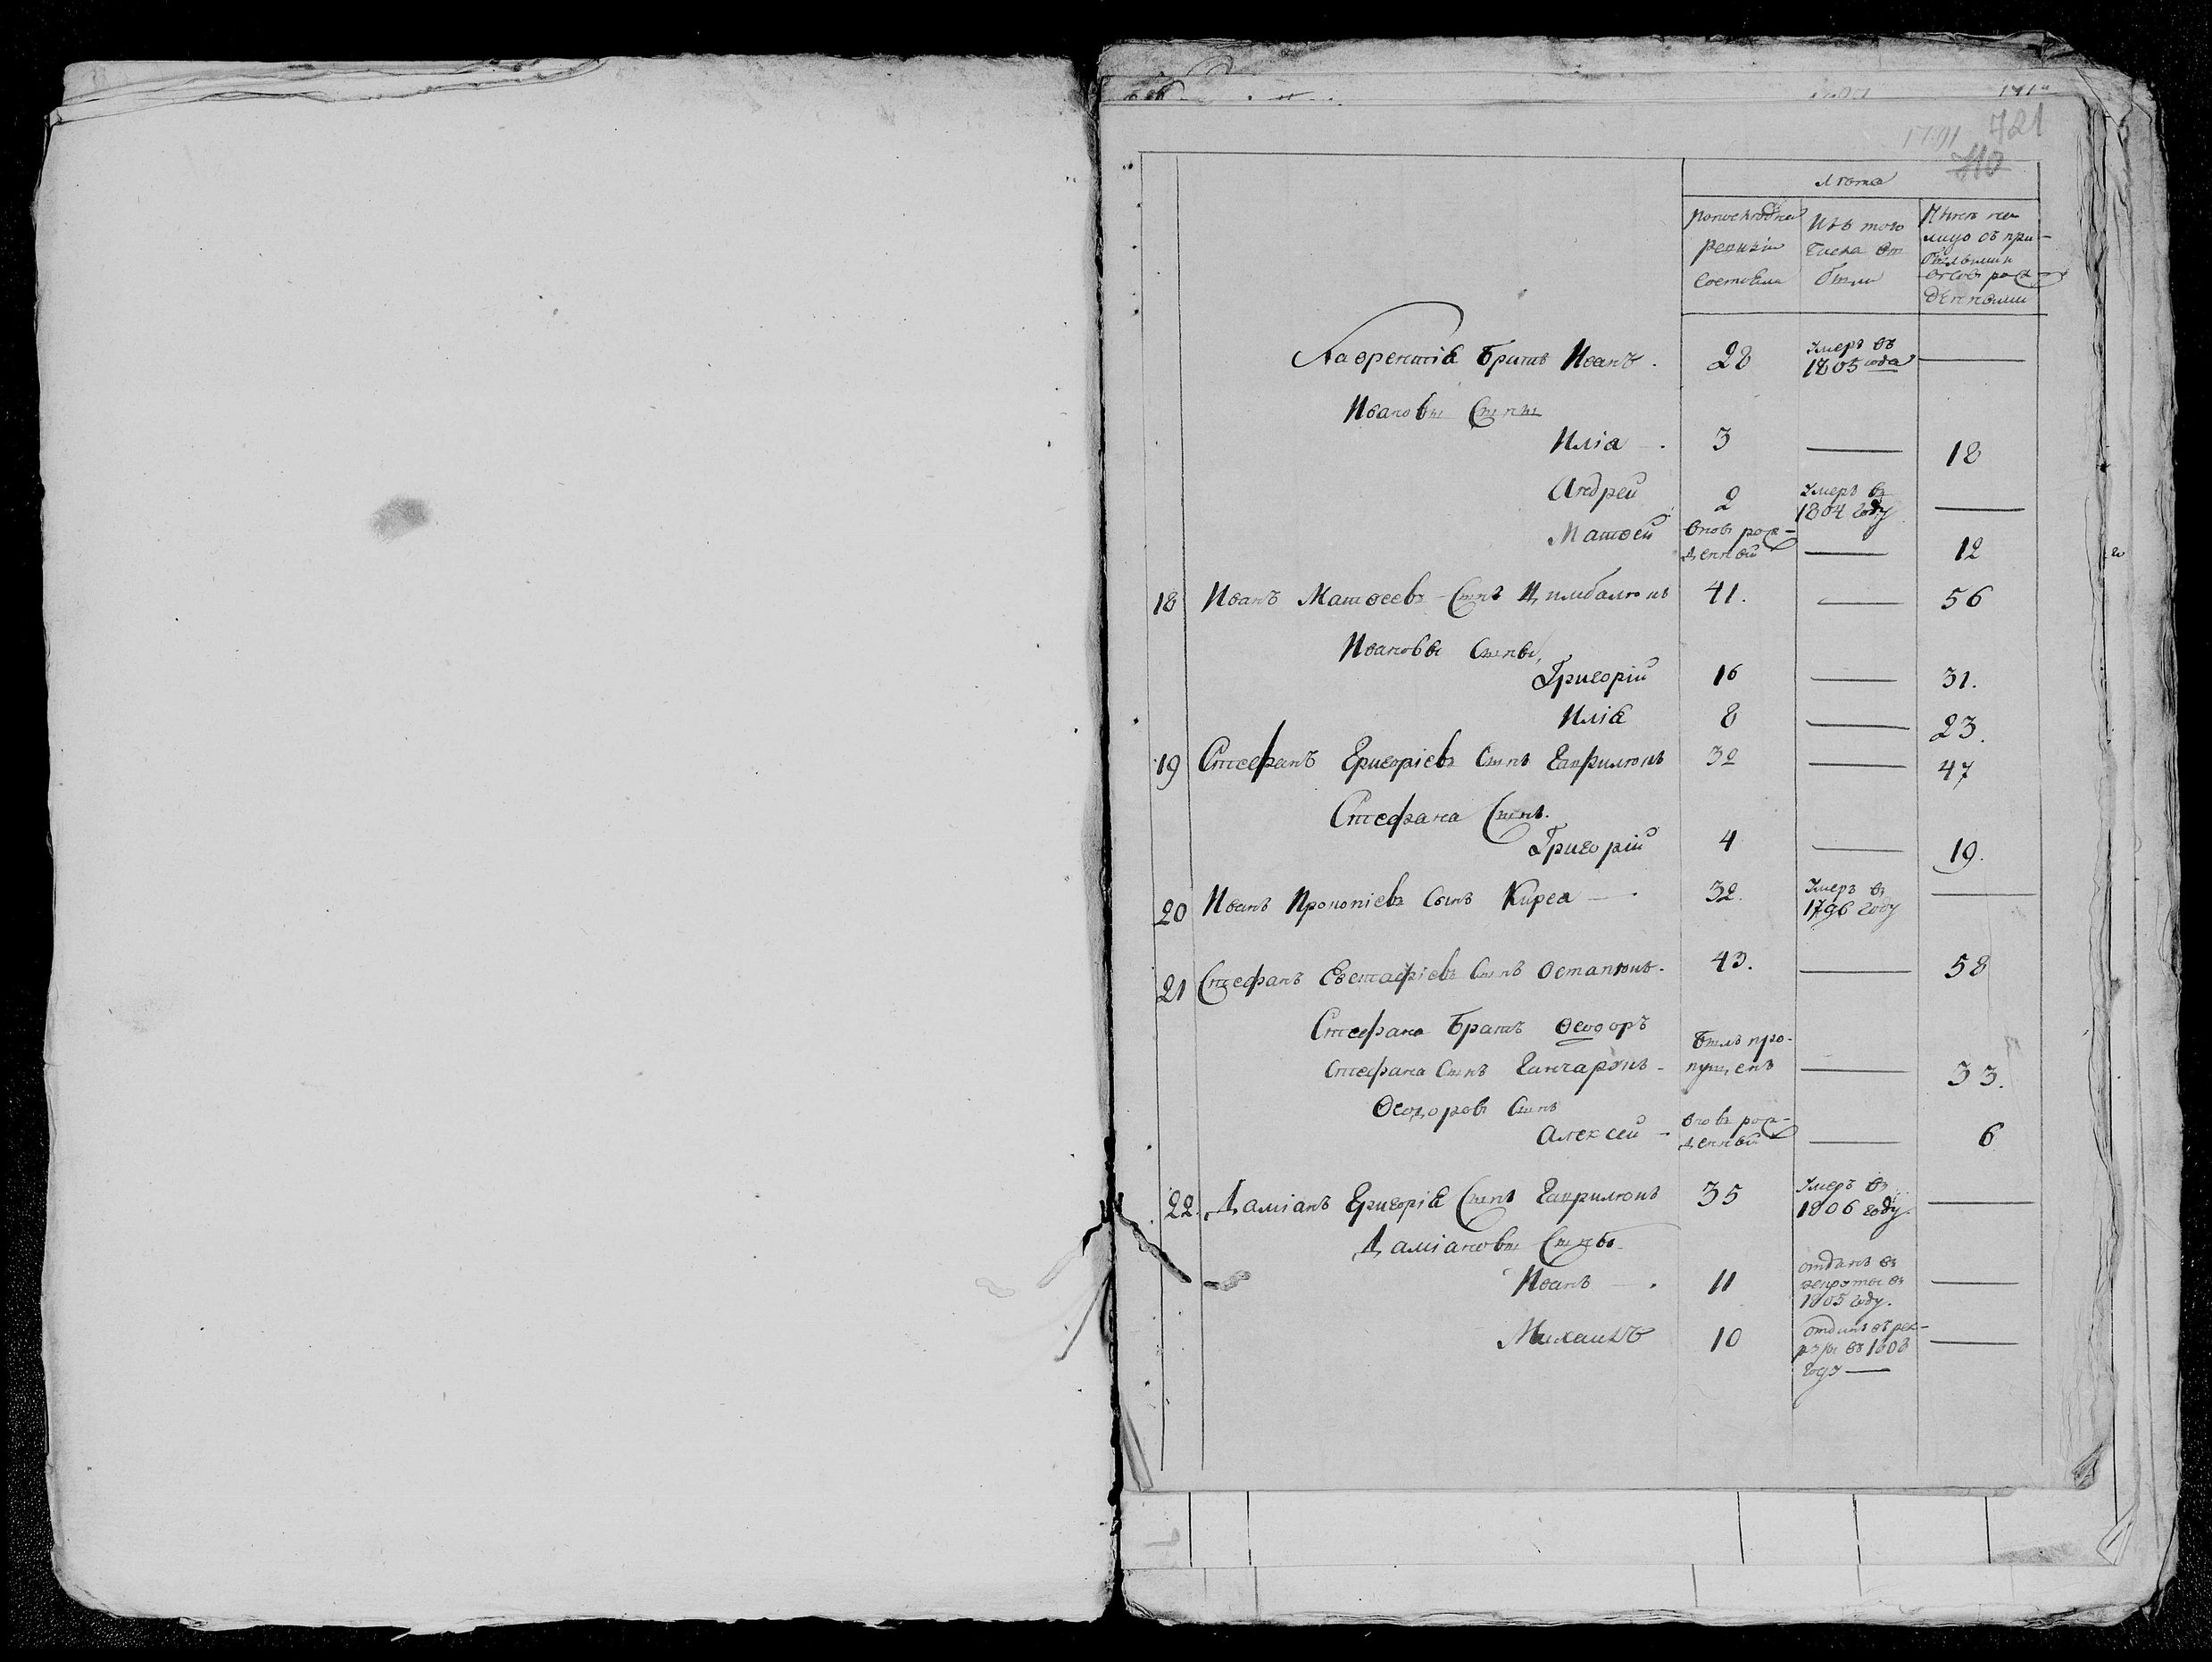 721
1791
710
Лѣта
По последней Ревизіи Состояли
Изъ того числа выбыли
Нынѣ на лицо съ прибылыми вновь рожденными
Лаврентія Братъ Иванъ. 28 Умеръ въ 1805 года —
Ивановы Сыны
Илія — 3 — 18
Андрей 2 Умеръ въ 1804 году —
Матвей вновь рожденный — 12
18 Иванъ Матвеевъ Сынъ Цимбалюкъ 41. — 56
Ивановы Сыны
Григорій 16 — 31.
Илія 8 — 23.
19 Стефанъ Григоріевъ Сынъ Гаврилюкъ 32 — 47
Стефана Сынъ.
Григорій 4 — 19.
20 Иванъ Прокопіевъ Сынъ Кирея — 32. Умеръ въ 1796 году —
21 Стефанъ Евстафіевъ Сынъ Остапюкъ. 43. — 58
Стефана Братъ Ѳеодоръ
Стефана Сынъ Ганчарукъ — былъ пропущенъ — 33.
Ѳеодоровъ Сынъ
Алексей — вновь рожденный — 6
22. Даміанъ Григорія Сынъ Гаврилюкъ 35 Умеръ въ 1806 году. —
Даміановы Сыны
Иванъ — 11 отданъ въ рекруты въ 1805 году. —
Михаилъ 10 отданъ въ рекруты въ 1808 году —